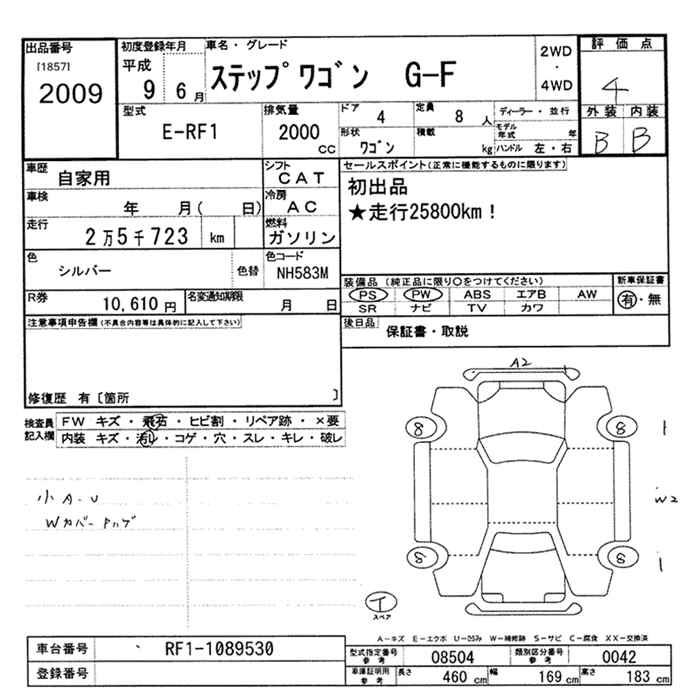 出品番号
[1857]
2009
初度登録年月
平成
9 6月
車名・グレード
ステップワゴン G-F
2WD
・
4WD
評価点
4
外装 内装
B B
型式
E-RF1
排気量
2000
cc
ドア
4
形状
ワゴン
定員
8 人
積載
kg
ディーラー・並行
モデル年式 年
ハンドル 左・右
車歴
自家用
シフト
CAT
車検
年 月( 日)
冷房
AC
走行
2万5千723 km
燃料
ガソリン
色
シルバー
色替
色コード
NH583M
R券
10,610円
名変通知期限
月 日
セールスポイント(正常に機能するものに限ります)
初出品
★走行25800km!
装備品(純正品に限り○をつけてください)
PS PW ABS エアB AW
SR ナビ TV カワ
新車保証書
有・無
後日品
保証書・取説
注意事項申告欄(不具合内容等は具体的に記入して下さい)
修復歴 有〔箇所 〕
検査員記入欄
FW キズ・飛石・ヒビ割・リペア跡・×要
内装 キズ・汚レ・コゲ・穴・スレ・キレ・破レ
小A.U
Wカバー
A2
8 8 1
W2
8 8 1
T
スペア
A-キズ E-エクボ U-凹み W-補修跡 S-サビ C-腐食 XX-交換済
車台番号
RF1-1089530
登録番号
型式指定番号
参考
08504
類別区分番号
参考
0042
車庫証明用
参考
長さ
460 cm
幅
169 cm
高さ
183 cm